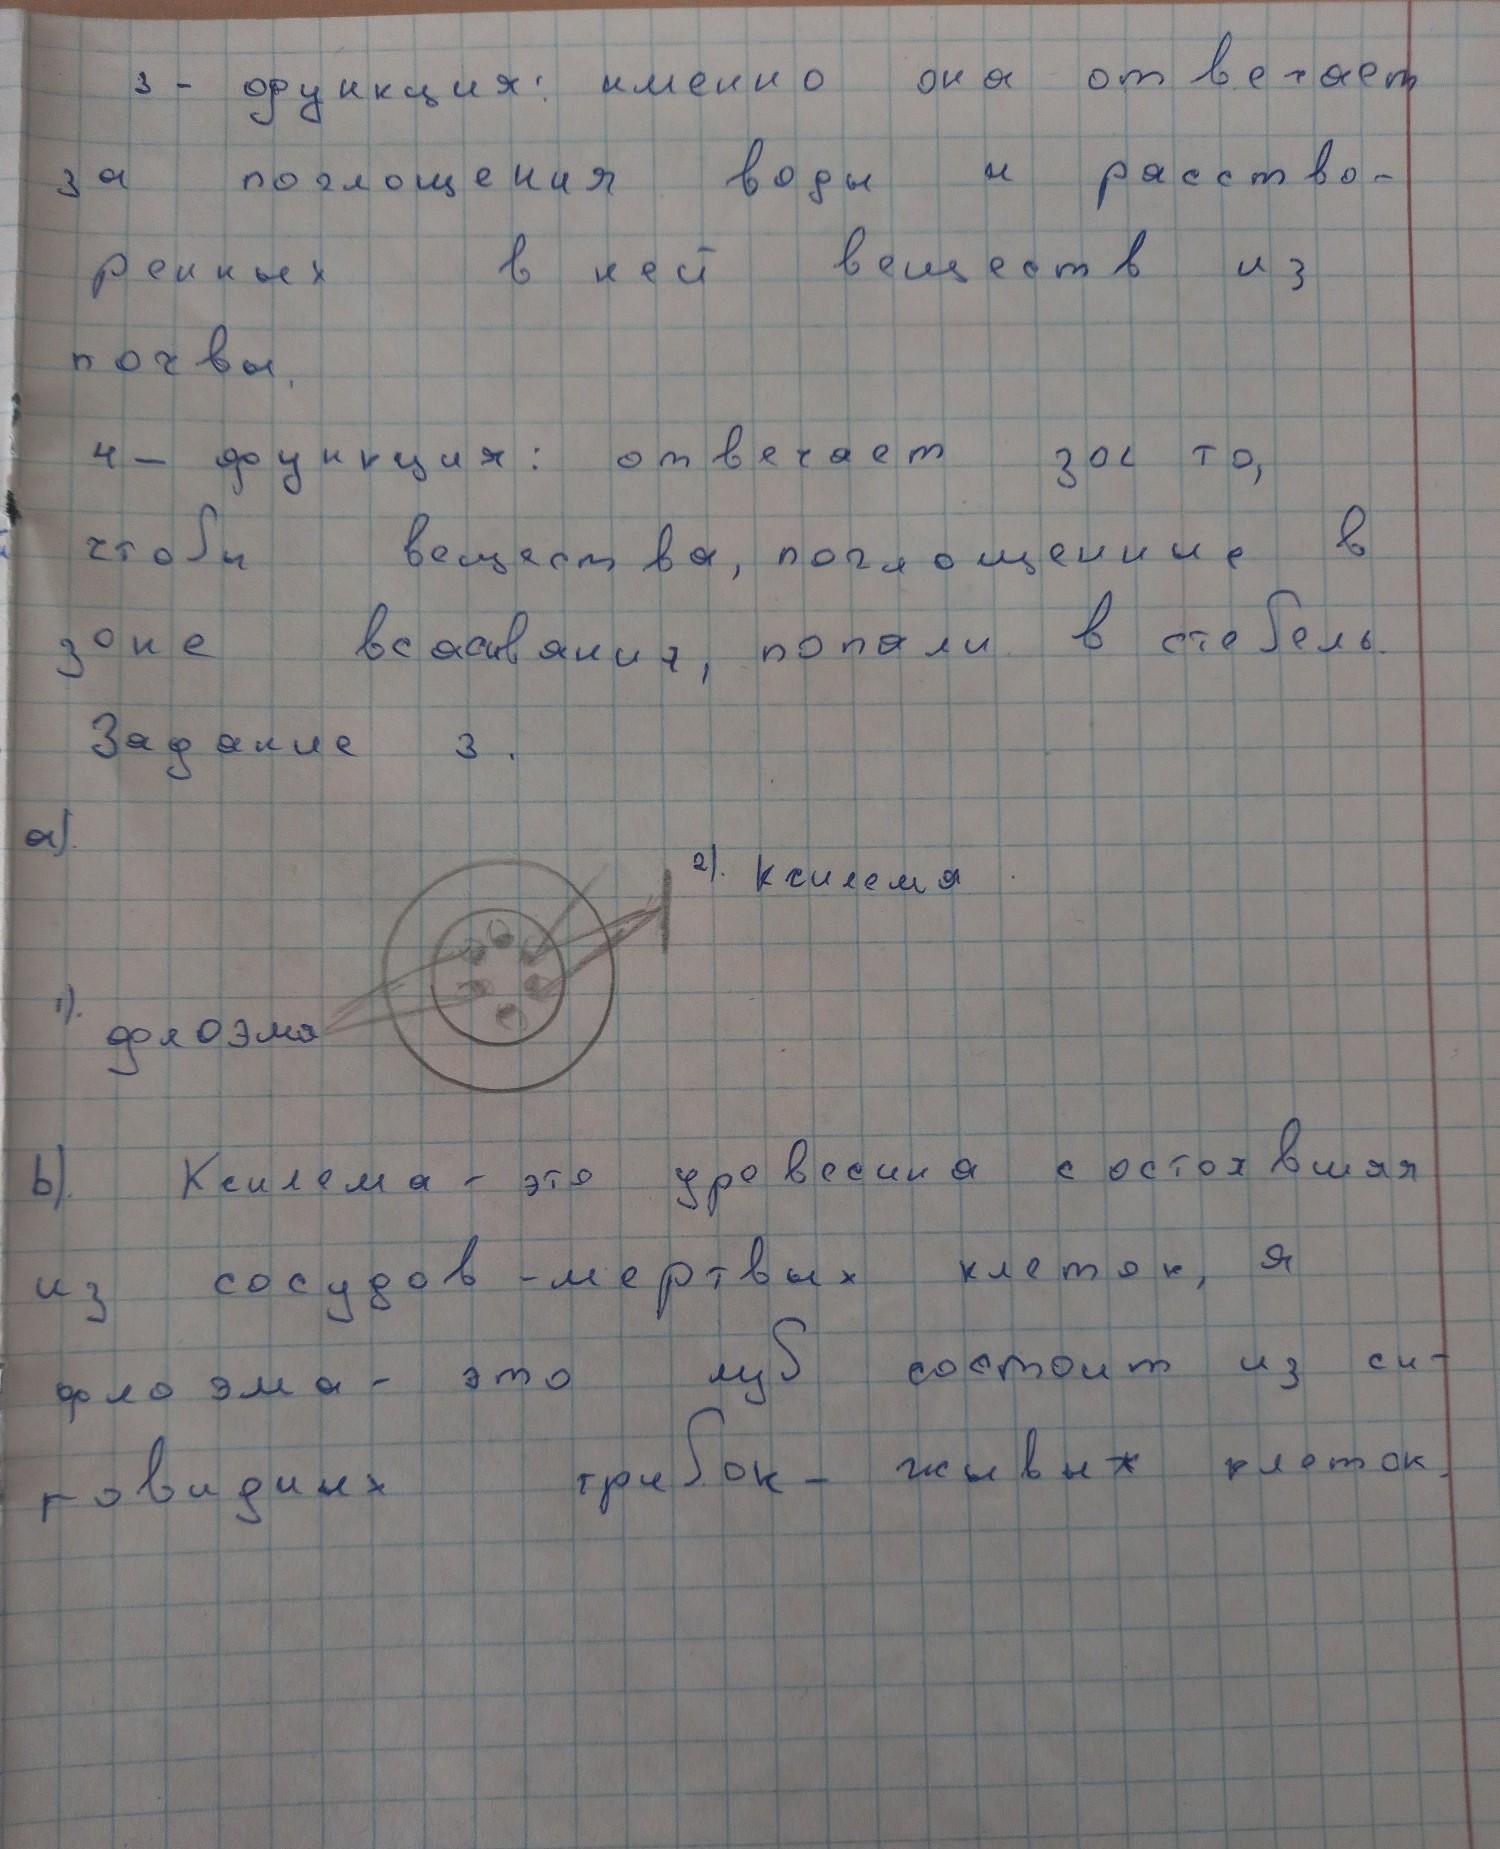 3 - функция: именно она отвечает
за поглощения воды и расство-
ренных в ней веществ из
почвы.
4 - функция: отвечает за то,
чтобы вещества, поглощенные в
зоне всасвания, попали в стебель.
Задание 3.
а).
2). Ксилема
1).
флоэма
b). Ксилема - это уровесина состоявшая
из сосудов - мертвых клеток, а
флоэма - это луб состоит из си-
товидных трубок - живых клеток.